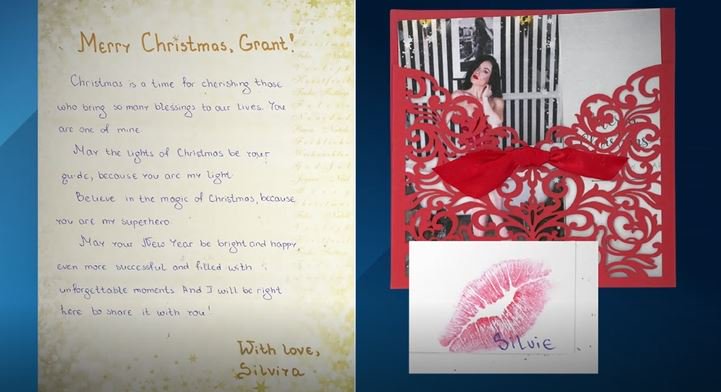 Merry Christmas, Grant!
Christmas is a time for cherishing those
who bring so many blessings to our lives. You
are one of mine
May the lights of Christmas be your
guide, because you are my light.
Believe in the magic of Christmas, because
you are my superhero.
May your New Year be bright and happy,
even more successful and filled with
unforgettable moments. And I will be right
here to share it with you!
With love,
Silvira
Silvie